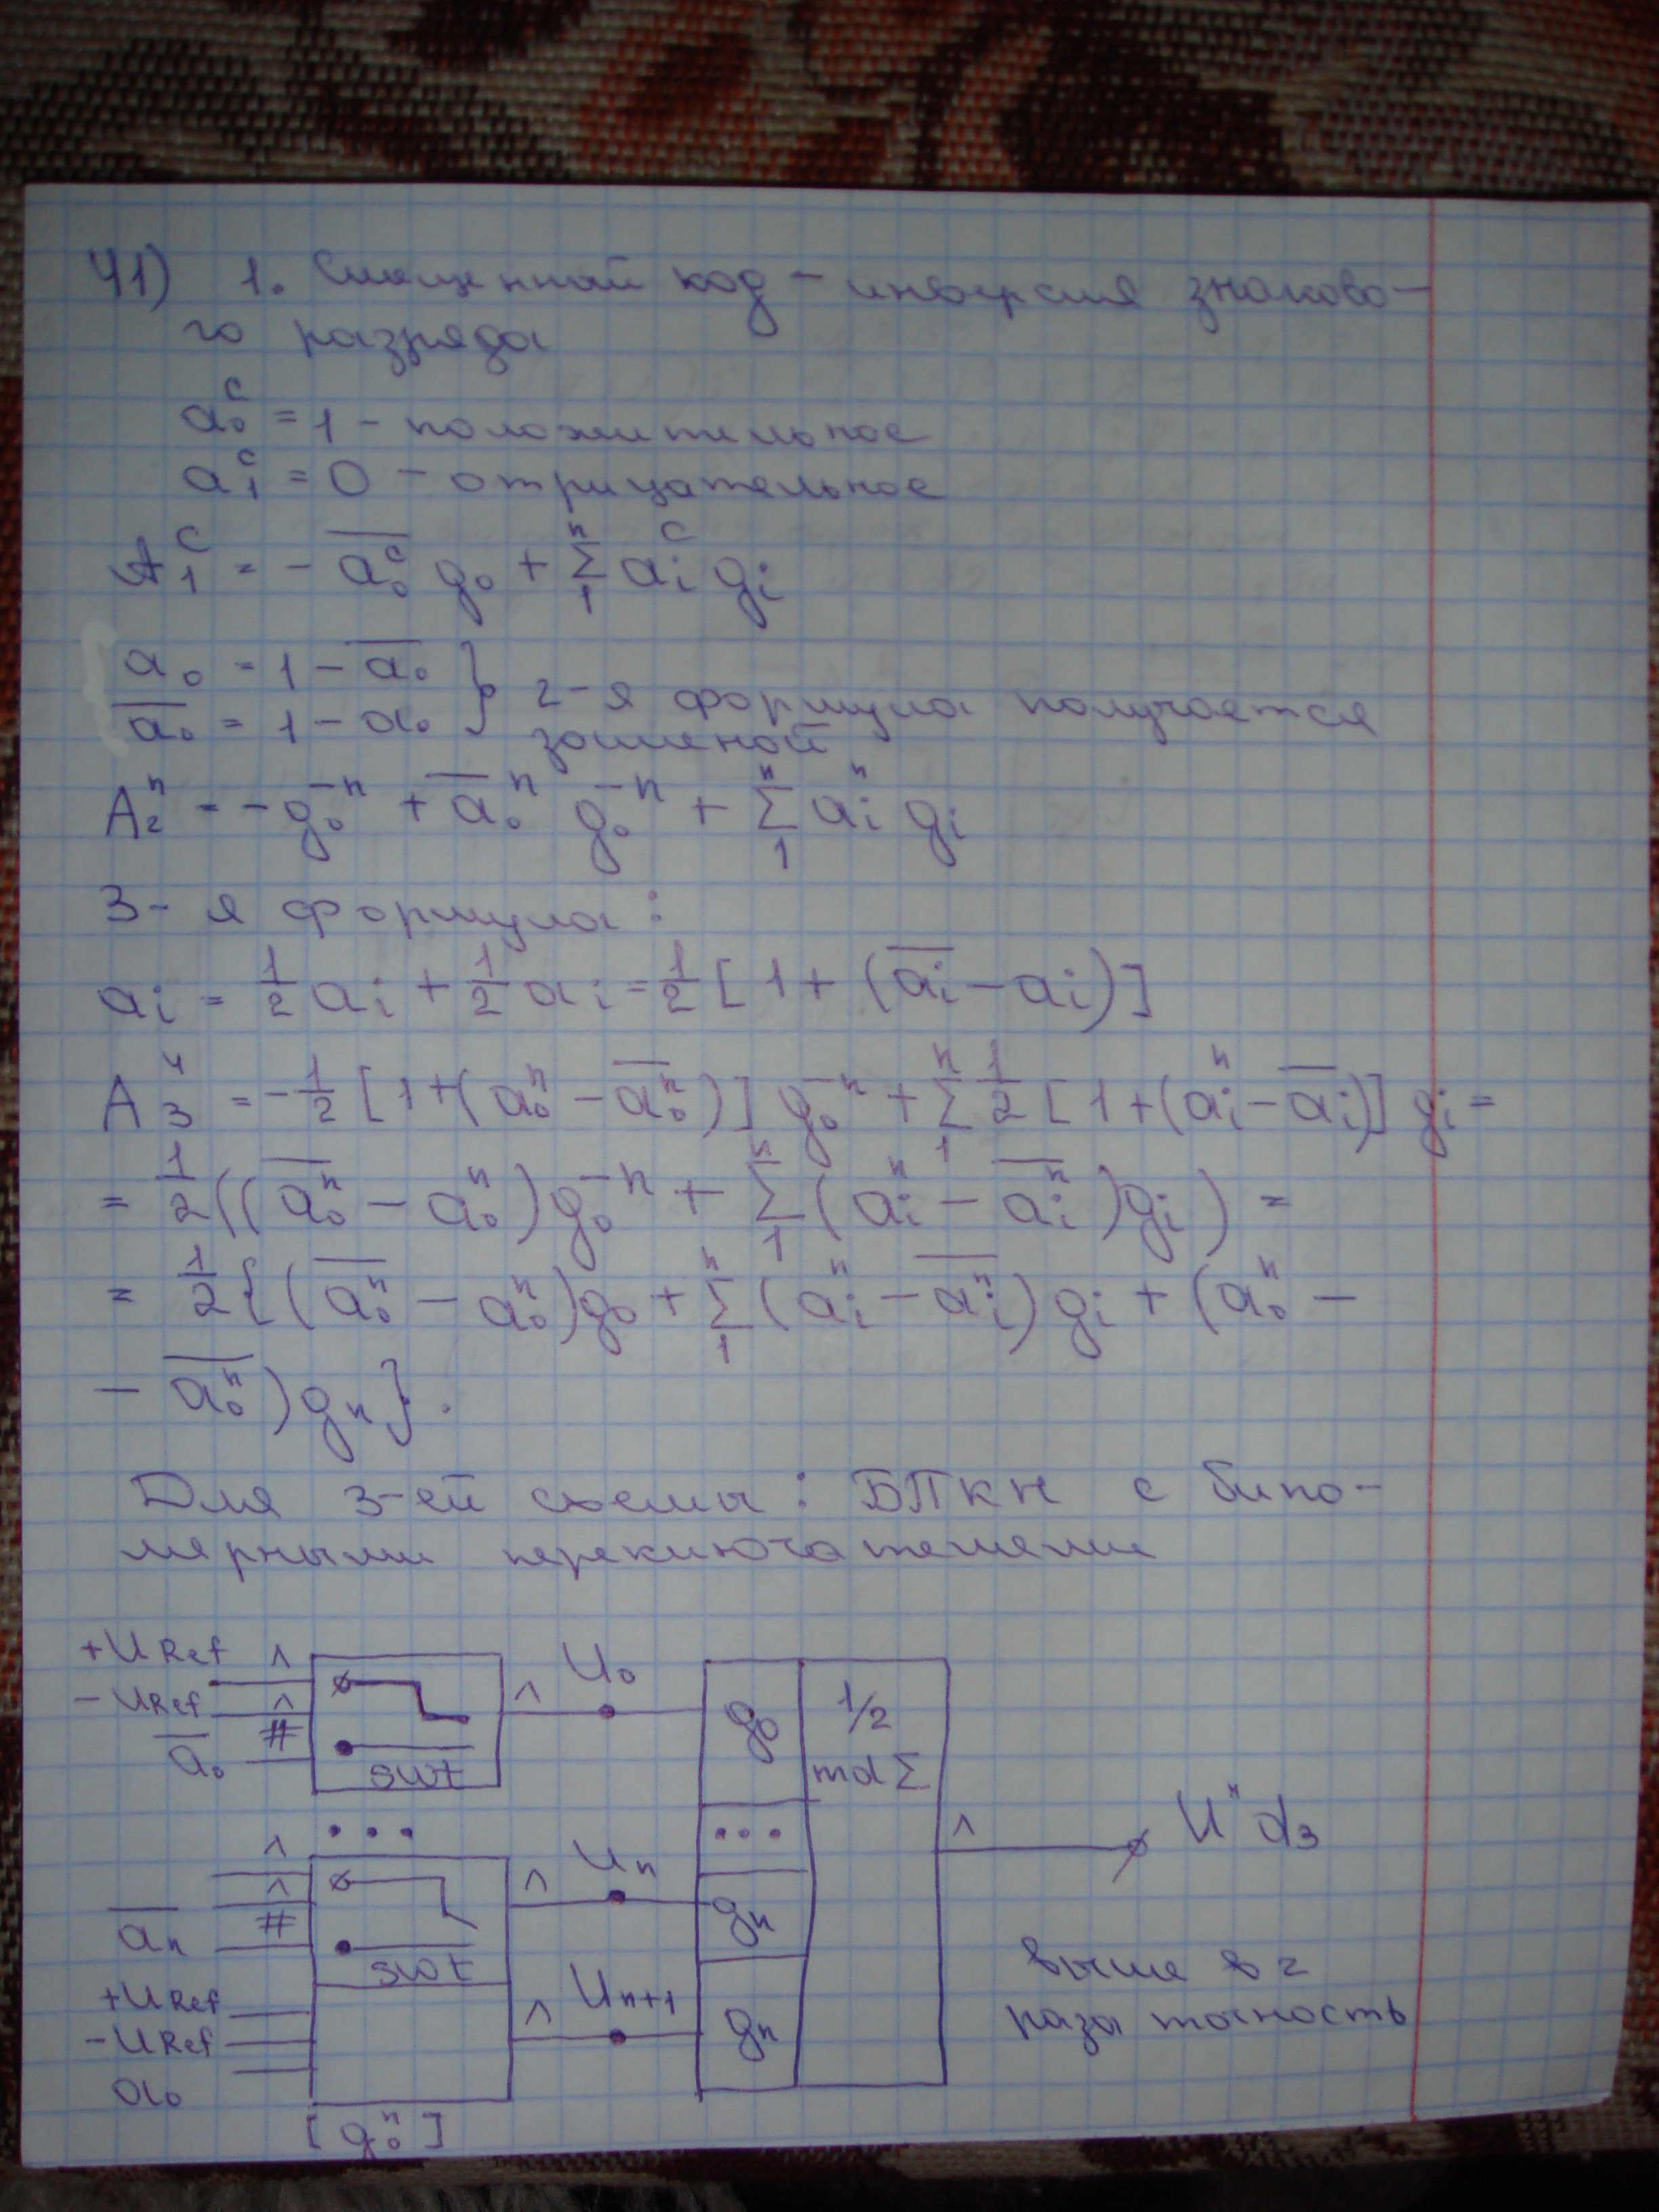 41) 1. Смещенный код – инверсия знаково-
го разряда
a₀ᶜ = 1 – положительное
a₁ᶜ = 0 – отрицательное
A₁ᶜ = – a̅₀ᶜ g₀ + Σ₁ⁿ aᵢᶜ gᵢ
a₀ = 1 – a̅₀
a̅₀ = 1 – a₀ } 2-я формула получается
заменой
A₂ⁿ = – g₀⁻ⁿ + a̅₀ⁿ g₀⁻ⁿ + Σ₁ⁿ aᵢⁿ gᵢ
3-я формула:
aᵢ = 1/2 aᵢ + 1/2 aᵢ = 1/2 [1 + (a̅ᵢ – aᵢ)]
A₃ч = – 1/2 [1 + (a₀ⁿ – a̅₀ⁿ)] g₀⁻ⁿ + Σ₁ⁿ 1/2 [1 + (aᵢⁿ – a̅ᵢ)] gᵢ =
= 1/2 ((a̅₀ⁿ – a₀ⁿ) g₀⁻ⁿ + Σ₁ⁿ (aᵢⁿ – a̅ᵢⁿ) gᵢ) =
= 1/2 {(a̅₀ⁿ – a₀ⁿ) g₀ + Σ₁ⁿ (aᵢⁿ – a̅ᵢⁿ) gᵢ + (a₀ⁿ –
– a̅₀ⁿ) gₙ}.
Для 3-ей схемы: БПКН с бипо-
лярными переключателями
+URef ^
–URef ^
a̅₀ #
swt
^ U₀
g₀
1/2
md Σ
...
...
^
^
a̅ₙ #
swt
^ Uₙ
gₙ
^ Uⁿd₃
+URef
–URef
a₀
^ Uₙ₊₁
gₙ
выше в 2
разы точность
[g₀ⁿ]